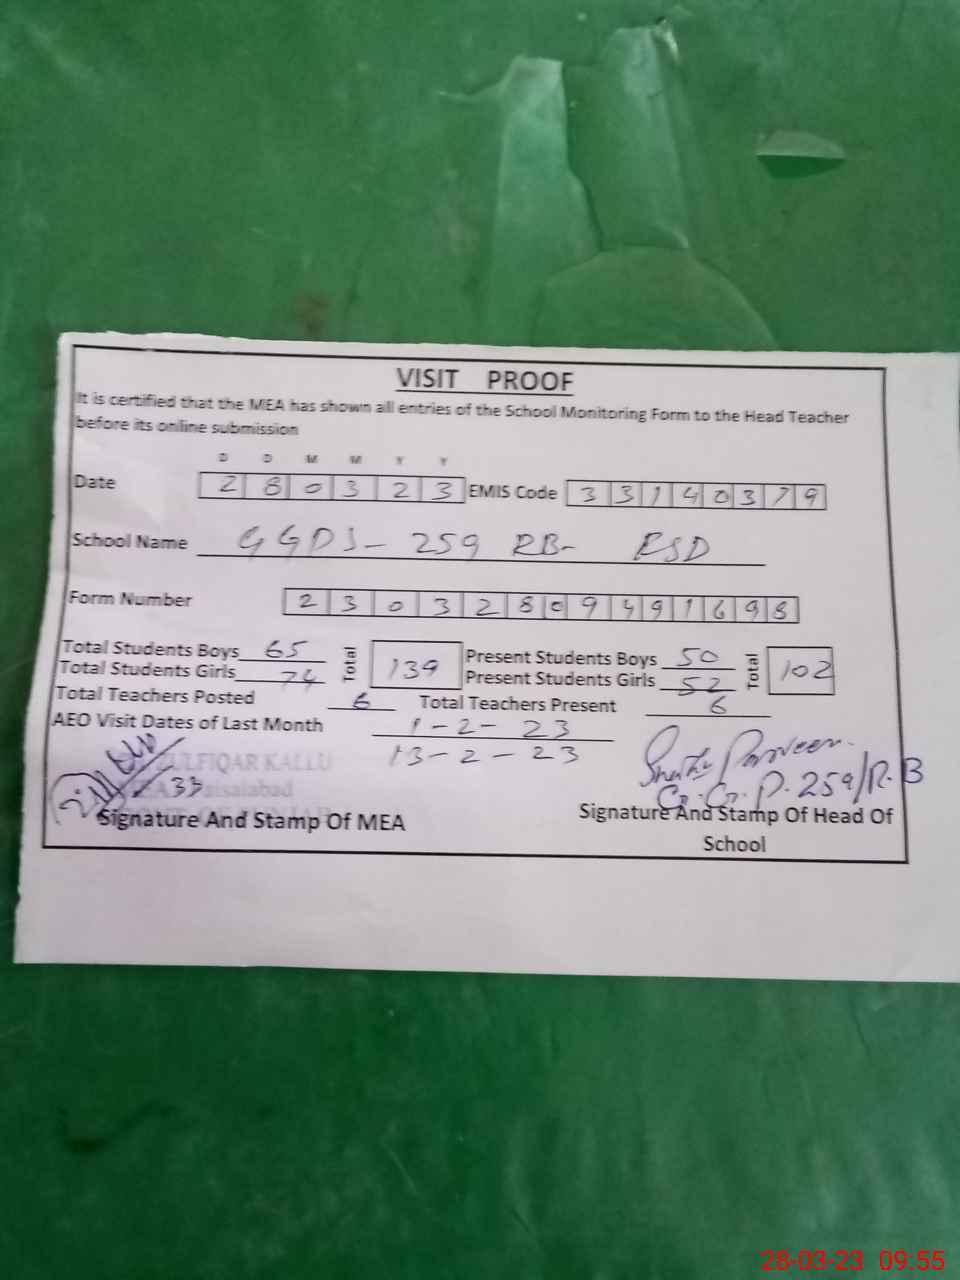 VISIT PROOF
It is certified that the MEA has shown all entries of the School Monitoring Form to the Head Teacher
before its online submission
D D M M Y Y
Date 2 8 0 3 2 3 EMIS Code 3 3 1 4 0 3 7 9
School Name GGPS- 259 RB- FSD
Form Number 2 3 0 3 2 8 0 9 4 9 1 6 9 8
Total Students Boys 65 Total 139 Present Students Boys 50 Total 102
Total Students Girls 74 Present Students Girls 52
Total Teachers Posted 6 Total Teachers Present 6
AEO Visit Dates of Last Month 1-2-23
13-2-23
ZULFIQAR KALLU
Parveen
33 Faisalabad G.G.P.259/R.B
Signature And Stamp Of MEA Signature And Stamp Of Head Of
School
28-03-23 09:55